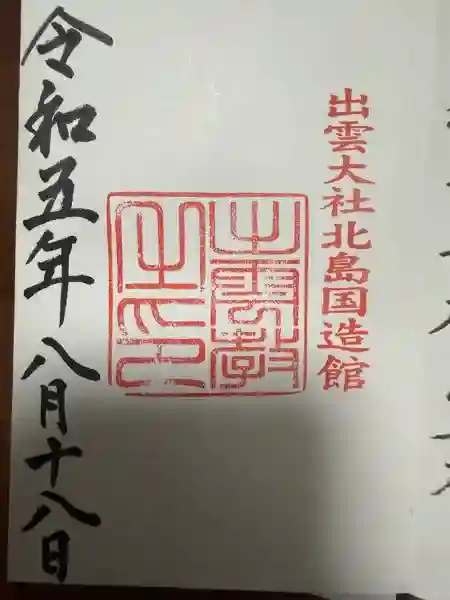 出雲大社北島国造館
出雲教
之印
令和五年八月十八日